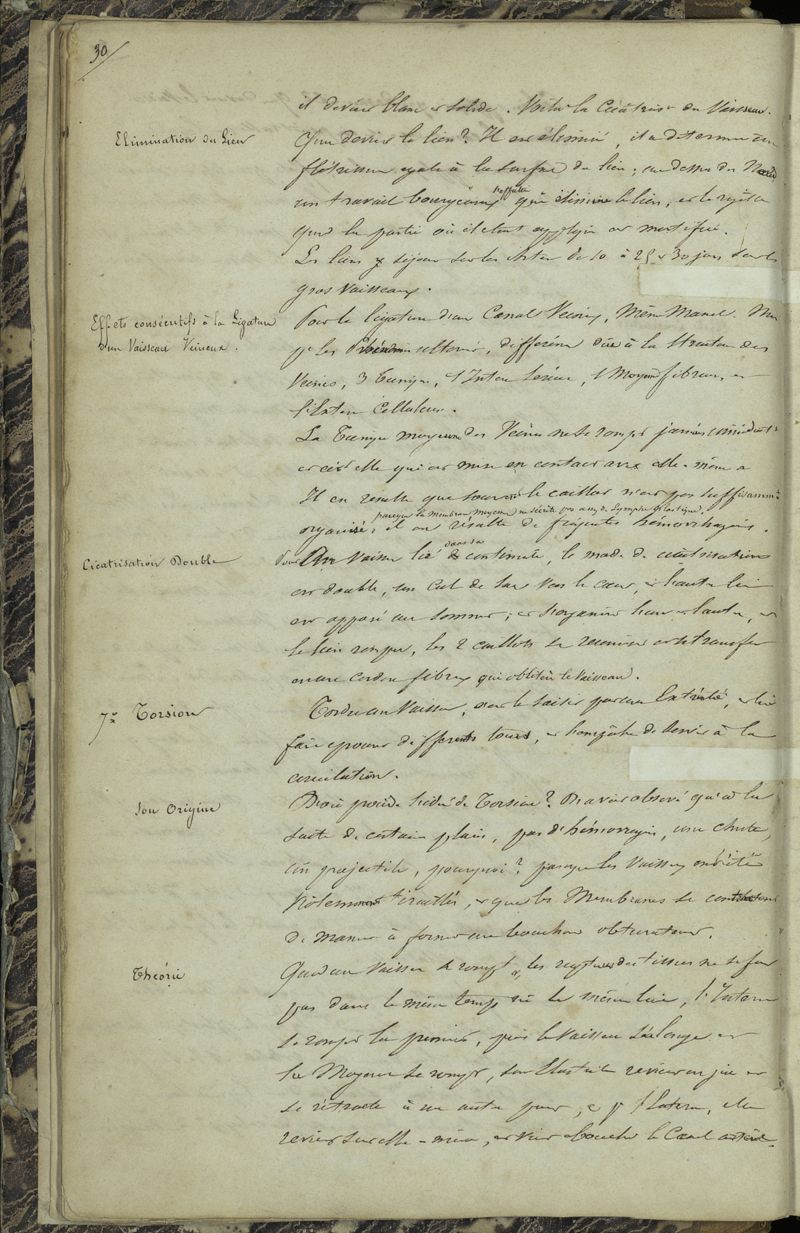 30
il devient blanc et solide. Voilà la Cicatrice du Vaisseau.
Elimination du Lien
Que devient le lien? Il est éliminé, il a déterminé une
flétrissure égale à la surface du lien; au dessus du Nœud
un travail bourgeonneux suppuré qui élimine le lien, et le rejette
que la partie où il était appliqué est mortifiée.
Les liens y séjournent sur les Artères de 10 à 25 et 30 jours sur les
gros Vaisseaux.
Effets consécutifs à la Ligature
d'un Vaisseau Veineux.
Pour la ligature d'un Canal Veineux, Même Manuel. Mais
les Phénomènes ultérieurs, diffèrent dûe à la Structure des
Veines, 3 Tuniques, l'Interne Séreuse, la Moyenne fibreuse, et
l'Externe Celluleuse.
La Tunique moyenne des Veines ne se rompt jamais
et c'est elle qui est mise en contact avec elle-même
Il en résulte que souvent le caillot n'est pas suffisamment
parceque la Membrane Moyenne ne sécrète pas assez de Lymphe plastique.
organisé, il en résulte de fréquentes hémorrhagies.
Cicatrisation Double
Pour Un Vaisseau lié dans sa continuité, le mode de cicatrisation
est double, un Cul de Sac vers le cœur, et l'autre lui
est opposé au sommet; et s'organise l'un et l'autre, et
le lien rompu, les 2 caillots se réunissent et se transforment
en un cordon fibreux qui oblitère le Vaisseau.
7° Torsion
Tordre un Vaisseau, c'est le saisir par une Extrémité, et lui
faire éprouver différents tours, et l'empêcher de servir à la
circulation.
Son Origine
D'où procède l'idée de Torsion? On avait observé qu'à la
suite de certaines plaies, pas d'hémorragie, une chute,
un projectile, pourquoi? parceque les Vaisseaux ont été
violemment tiraillés, et que les Membranes se
de manière à former un bouchon obturateur.
Théorie
Quand un Vaisseau se rompt, les ruptures des tissus ne se font
pas dans le même temps ni le même lieu, l'Interne
se rompt la première, puis le Vaisseau s'allonge et
la Moyenne se rompt, son Elasticité et
se rétracte à un autre point, l'Externe, elle
revient sur elle-même, et vient boucher le Canal artériel.